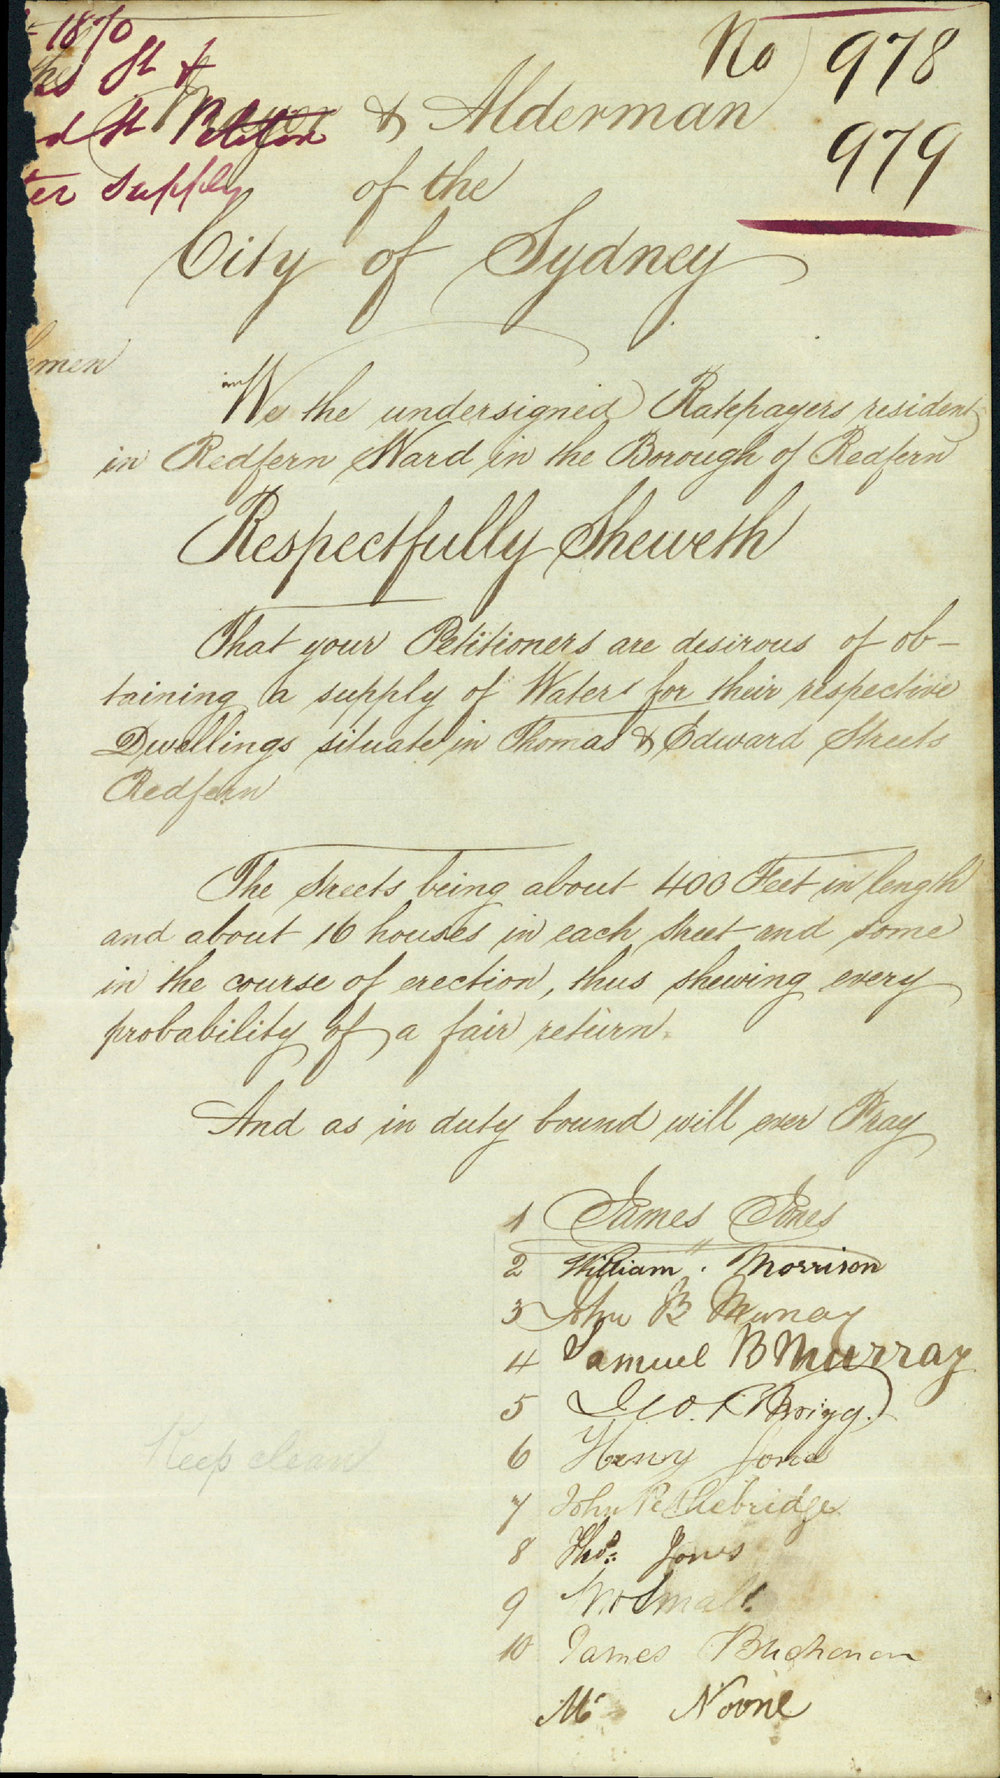 1870
No 978
St &
Mayor & Alderman
St Petition
979
Supply
of the
City of Sydney
emen
We the undersigned Ratepayers resident
in Redfern Ward in the Borough of Redfern
Respectfully Sheweth
That your Petitioners are desirous of ob-
taining a supply of Water for their respective
Dwellings situate in Thomas & Edward Streets
Redfern
The streets being about 400 Feet in length
and about 16 houses in each street and some
in the course of erection, thus shewing every
probability of a fair return.
And as in duty bound will ever Pray
1 James Jones
2 William Morrison
3 John B Murray
4 Samuel B Murray
5 Geo.
6 Henry Jones
Keep clean
7 John Pethebridge
8 Thos. Jones
9 Small
10 James Buchanan
Mr Noone